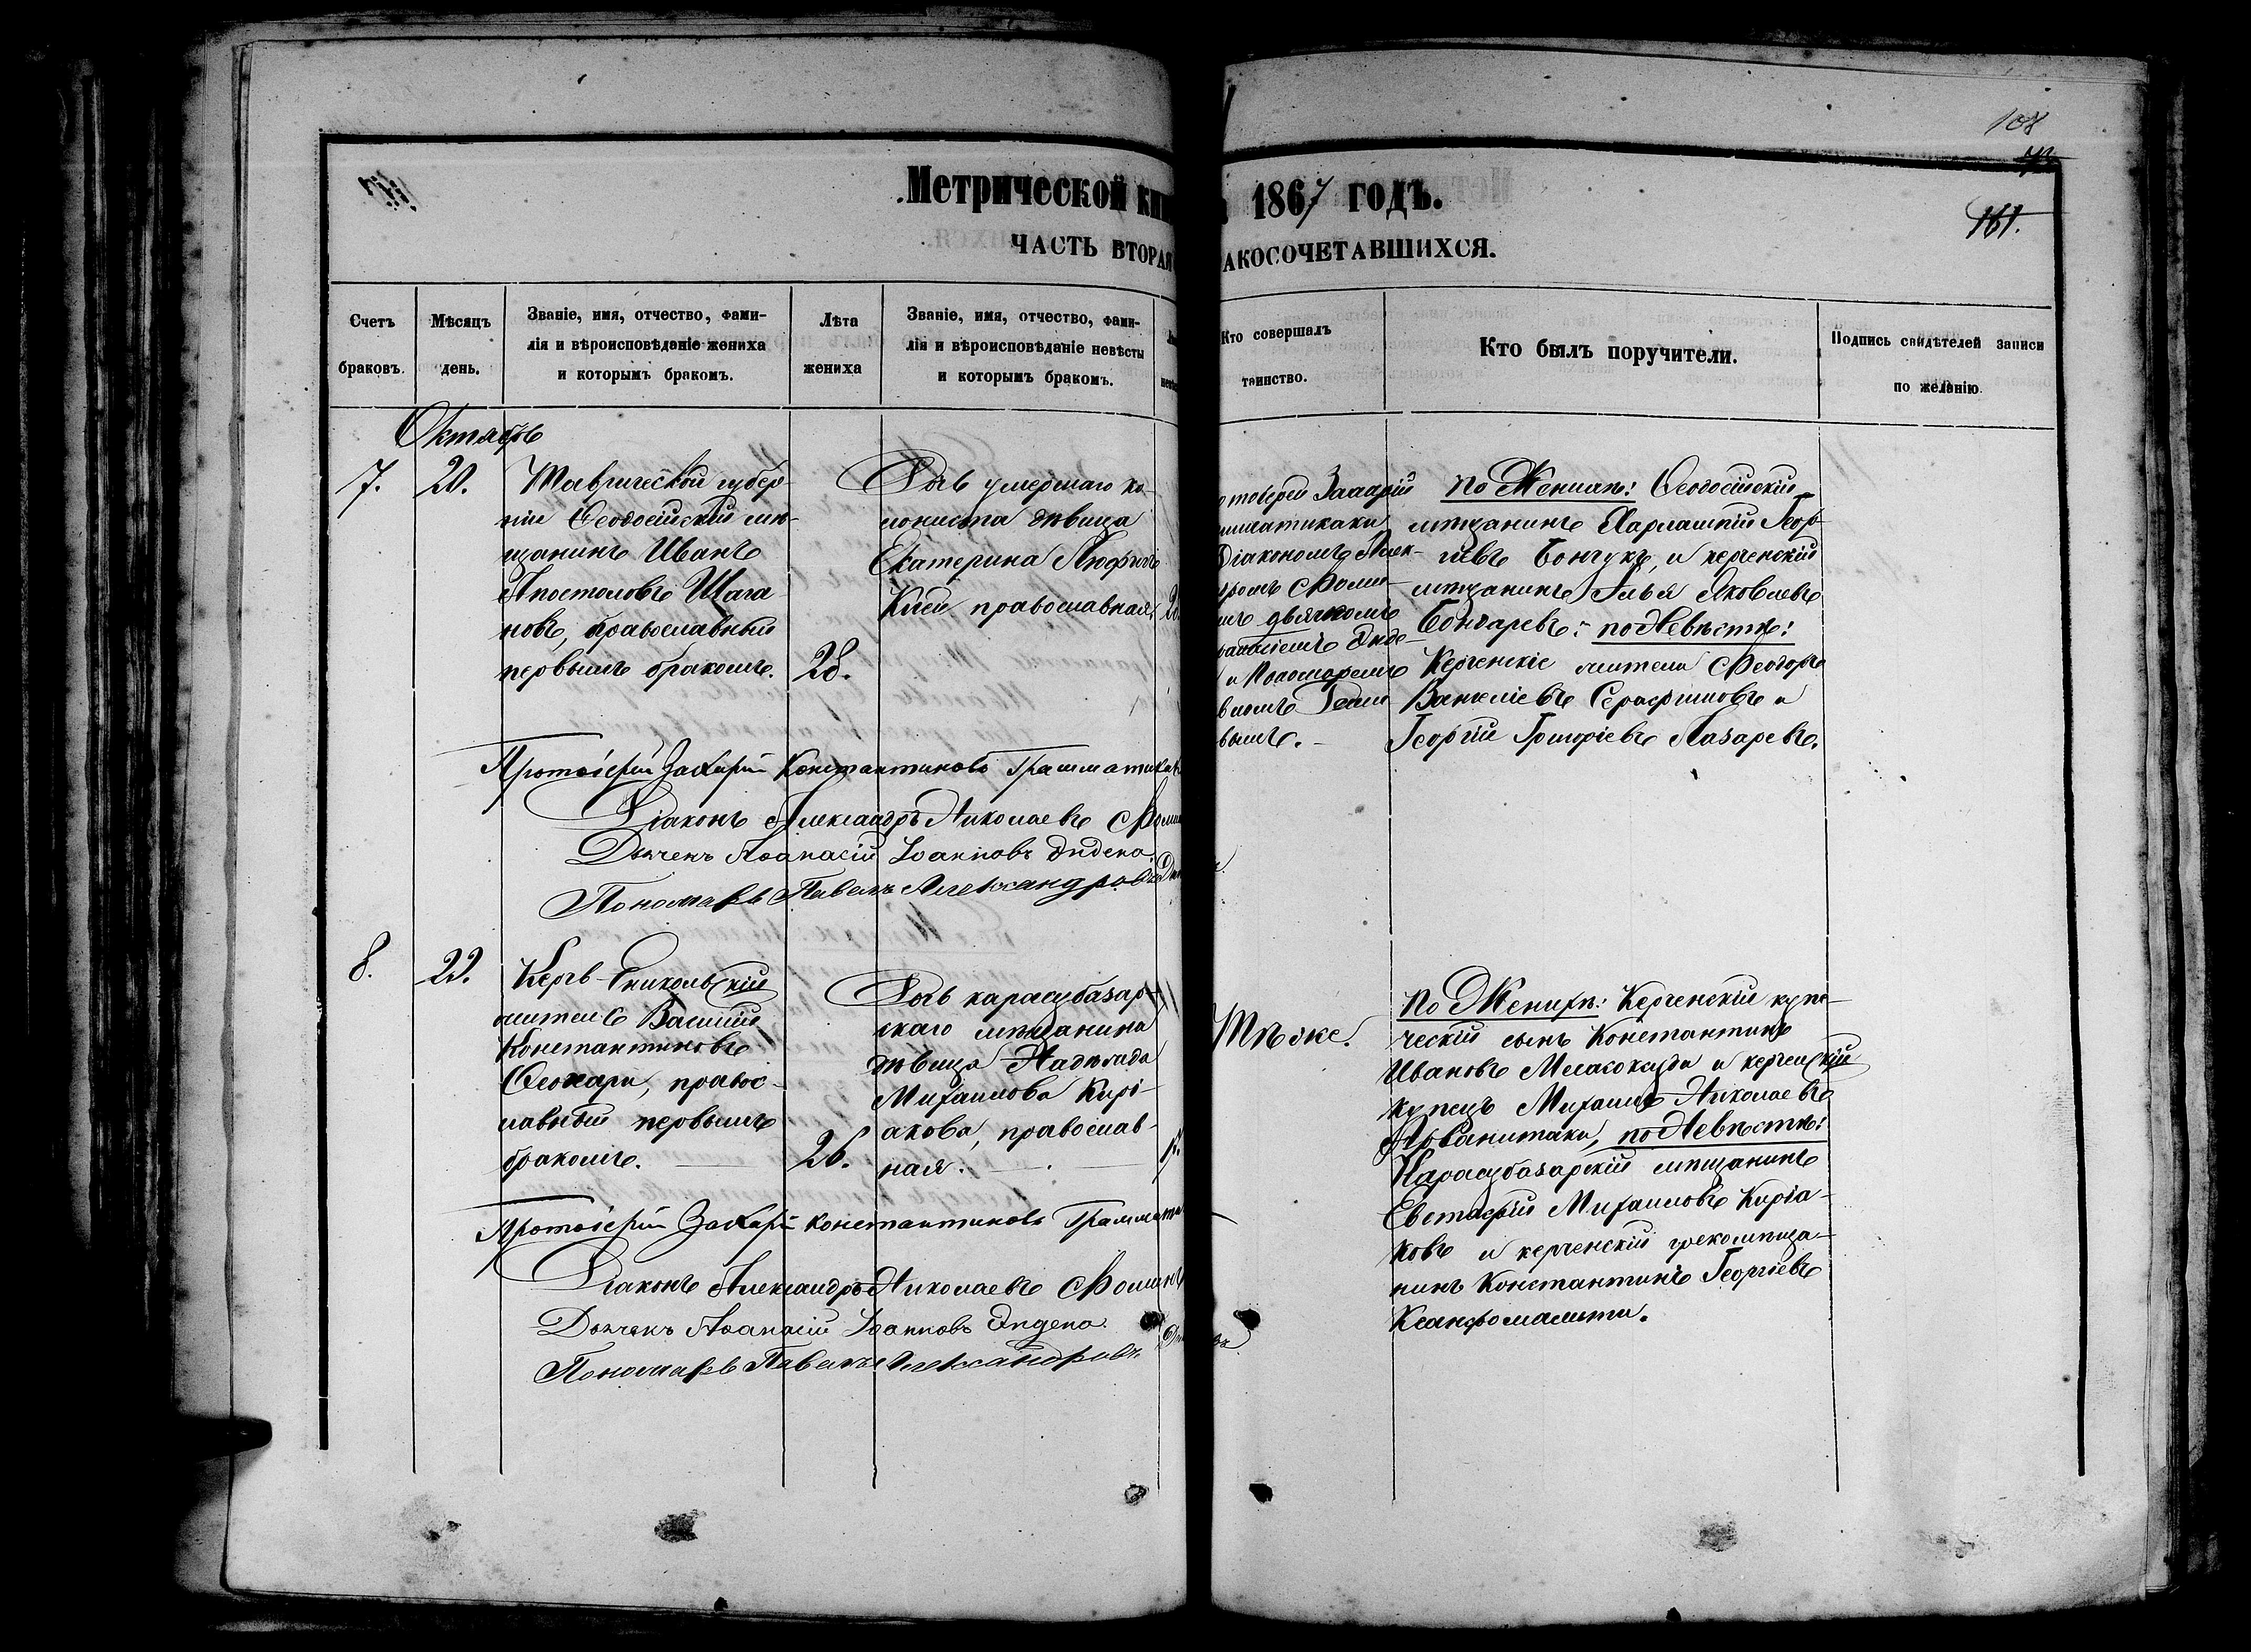 108
161.
Метрической кни
1867 годъ.
ЧАСТЬ ВТОРАЯ
АКОСОЧЕТАВШИХСЯ.
Счетъ браковъ.
Мѣсяцъ день.
Званіе, имя, отчество, фами-
лія и вѣроисповѣданіе жениха
и которымъ бракомъ.
Лѣта жениха
Званіе, имя, отчество, фами-
лія и вѣроисповѣданіе невѣсты
и которымъ бракомъ.
Кто совершалъ
таинство.
Кто былъ поручители.
Подпись свидѣтелей записи
по желанію
Октябрь
7.
20.
Таврической губер-
ніи Ѳеодосійскій мѣ-
щанинъ Иванъ
Апостоловъ Шага
новъ, православный
первымъ бракомъ.
28.
Дочь умершаго ко-
лониста дѣвица
Екатерина
Кіей православная,
отоіерей Захарій
мматикаки
Діакономъ Алек-
дромъ Фоми-
мъ дьячкомъ
и Пономаремъ
вымъ. —
По Женихѣ: Ѳеодосійскій
мѣщанинъ Харлампій Геор-
гіевъ Бончукъ, и керченскій
мѣщанинъ Илья Яковлевъ
Бондаревъ; по Невѣстѣ:
Керченскіе жители Ѳеодоръ
Вангеліевъ Серафимовъ и
Георгій Григоріевъ Лазаревъ.
Протоіерей Захарій Константиновъ Грамматикак
Діаконъ Александръ Николаевъ Фомин
Дьячекъ Аѳанасій Іоанновъ Дидено.
Пономарь Павелъ Александровъ
8.
22.
Керчь-Еникольскій
житель Василій
Константиновъ
Ѳеохари, правос-
лавный первымъ
бракомъ. —
26.
Дочь карасубазар-
скаго мѣщанина
дѣвица Надежда
Михаилова Кирі-
акова, православ-
ная. —
Тѣже.
По Женихѣ: Керченскій купе-
ческій сынъ Константинъ
Ивановъ Месаксуди и керченскій
купецъ Михаилъ Николаевъ
Арванитаки, по Невѣстѣ:
Карасубазарскій мѣщанинъ
Евстафій Михаиловъ Киріа-
ковъ и керченскій грекомѣща-
нинъ Константинъ Георгіевъ
Ксанфомалити.
Протоіерей Захарій Константиновъ Граммати
Діаконъ Александръ Николаевъ Фоминъ
Дьячекъ Аѳанасій Іоанновъ Дидено.
Пономарь Павелъ Александровъ